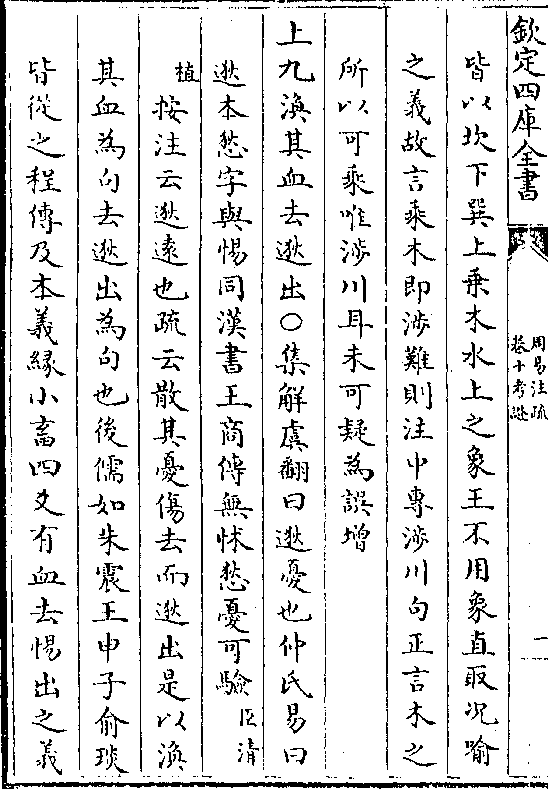 欽定四庫全書
周易注疏
卷十考證
一
皆以坎下巽上乗木水上之象王不用象直取况喻
之義故言乗木即涉難則注中專涉川句正言木之
所以可乗唯涉川耳未可疑為誤增
上九渙其血去逖出○集解虞翻曰逖憂也仲氏易曰
逖本悐字與惕同漢書王商傳無怵悐憂可驗臣清
植按注云逖遠也疏云散其憂傷去而逖出是以渙
其血為句去逖出為句也後儒如朱震王申子俞琰
皆從之程傳及本義緣小畜四爻有血去惕出之義